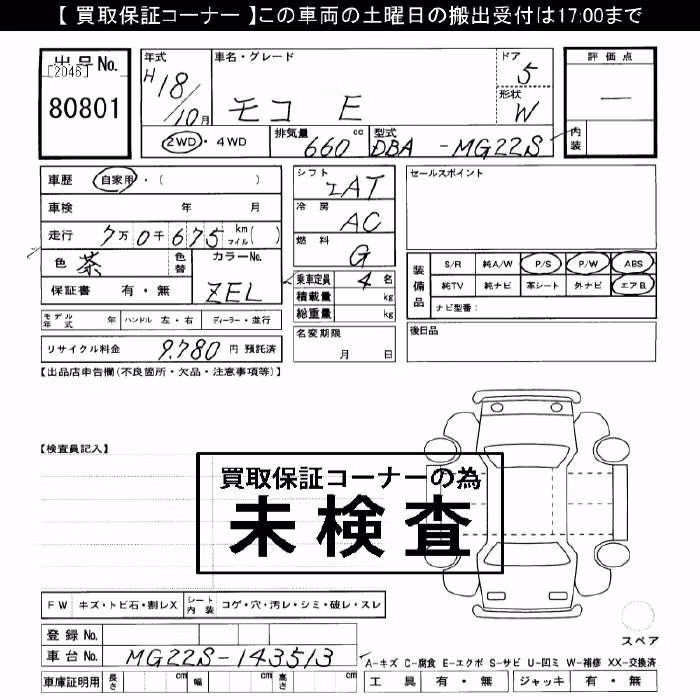 【 買取保証コーナー 】この車両の土曜日の搬出受付は17:00まで
出品No.
[2046]
80801
年式
H18/10月
車名・グレード
モコ E
ドア
5
形状
W
評価点
—
内装
2WD・4WD
排気量
660 cc
型式
DBA -MG22S
車歴 自家用・( )
車検 年 月
走行 7万0千675 km マイル( )
色 茶 色替
カラーNo.
ZEL
保証書 有・無
シフト
IAT
冷房
AC
燃料
G
乗車定員 4 名
積載量 kg
総重量 kg
セールスポイント
装備品
S/R 純A/W P/S P/W ABS
純TV 純ナビ 革シート 外ナビ エアB
ナビ型番:
モデル年式 年 ハンドル 左・右 ディーラー・並行
名変期限
月 日
後日品
リサイクル料金 9,780 円 預託済
【出品店申告欄(不良箇所・欠品・注意事項等)】
【検査員記入】
買取保証コーナーの為
未検査
FW キズ・トビ石・割レX シート内装 コゲ・穴・汚レ・シミ・破レ・スレ
スペア
登録No.
車台No. MG22S-143513
A-キズ C-腐食 E-エクボ S-サビ U-凹ミ W-補修 XX-交換済
車庫証明用 長さ cm 幅 cm 高さ cm
工具 有・無 ジャッキ 有・無